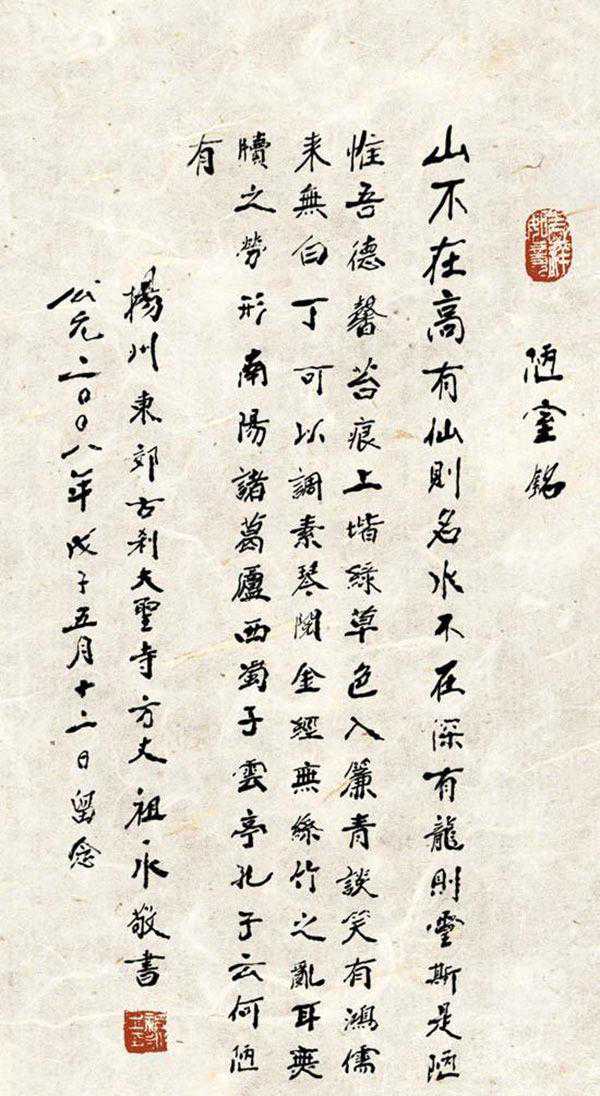 陋室銘
山不在高有仙則名水不在深有龍則靈斯是陋
惟吾德馨苔痕上堦綠草色入簾青談笑有鴻儒
来無白丁可以調素琴閱金經無絲竹之亂耳無
牘之勞形南陽諸葛廬西蜀子雲亭孔子云何陋
有
揚州東郊古刹大聖寺方丈祖永敬書
公元二〇〇八年戊子五月十二日留念